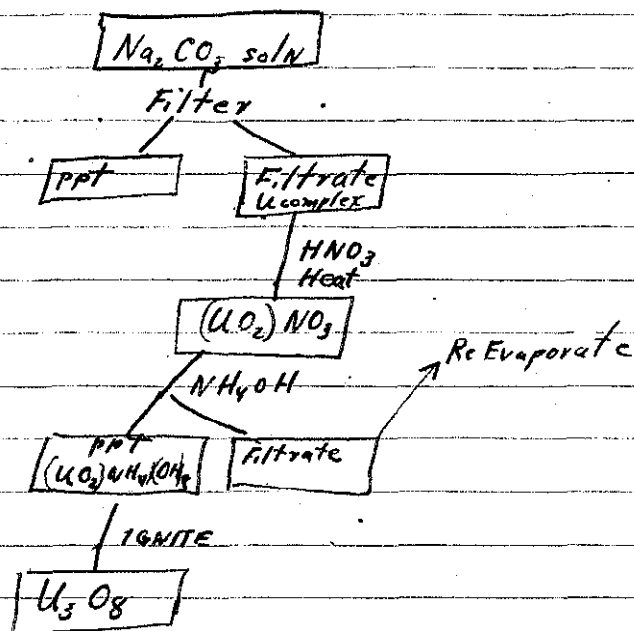 Na₂ CO₃ solN
Filter
ppt
Filtrate
U complex
HNO₃
Heat
(UO₂) NO₃
Re Evaporate
NH₄ OH
ppt
(UO₂) NH₄)(OH)₈
Filtrate
IGNITE
U₃ O₈